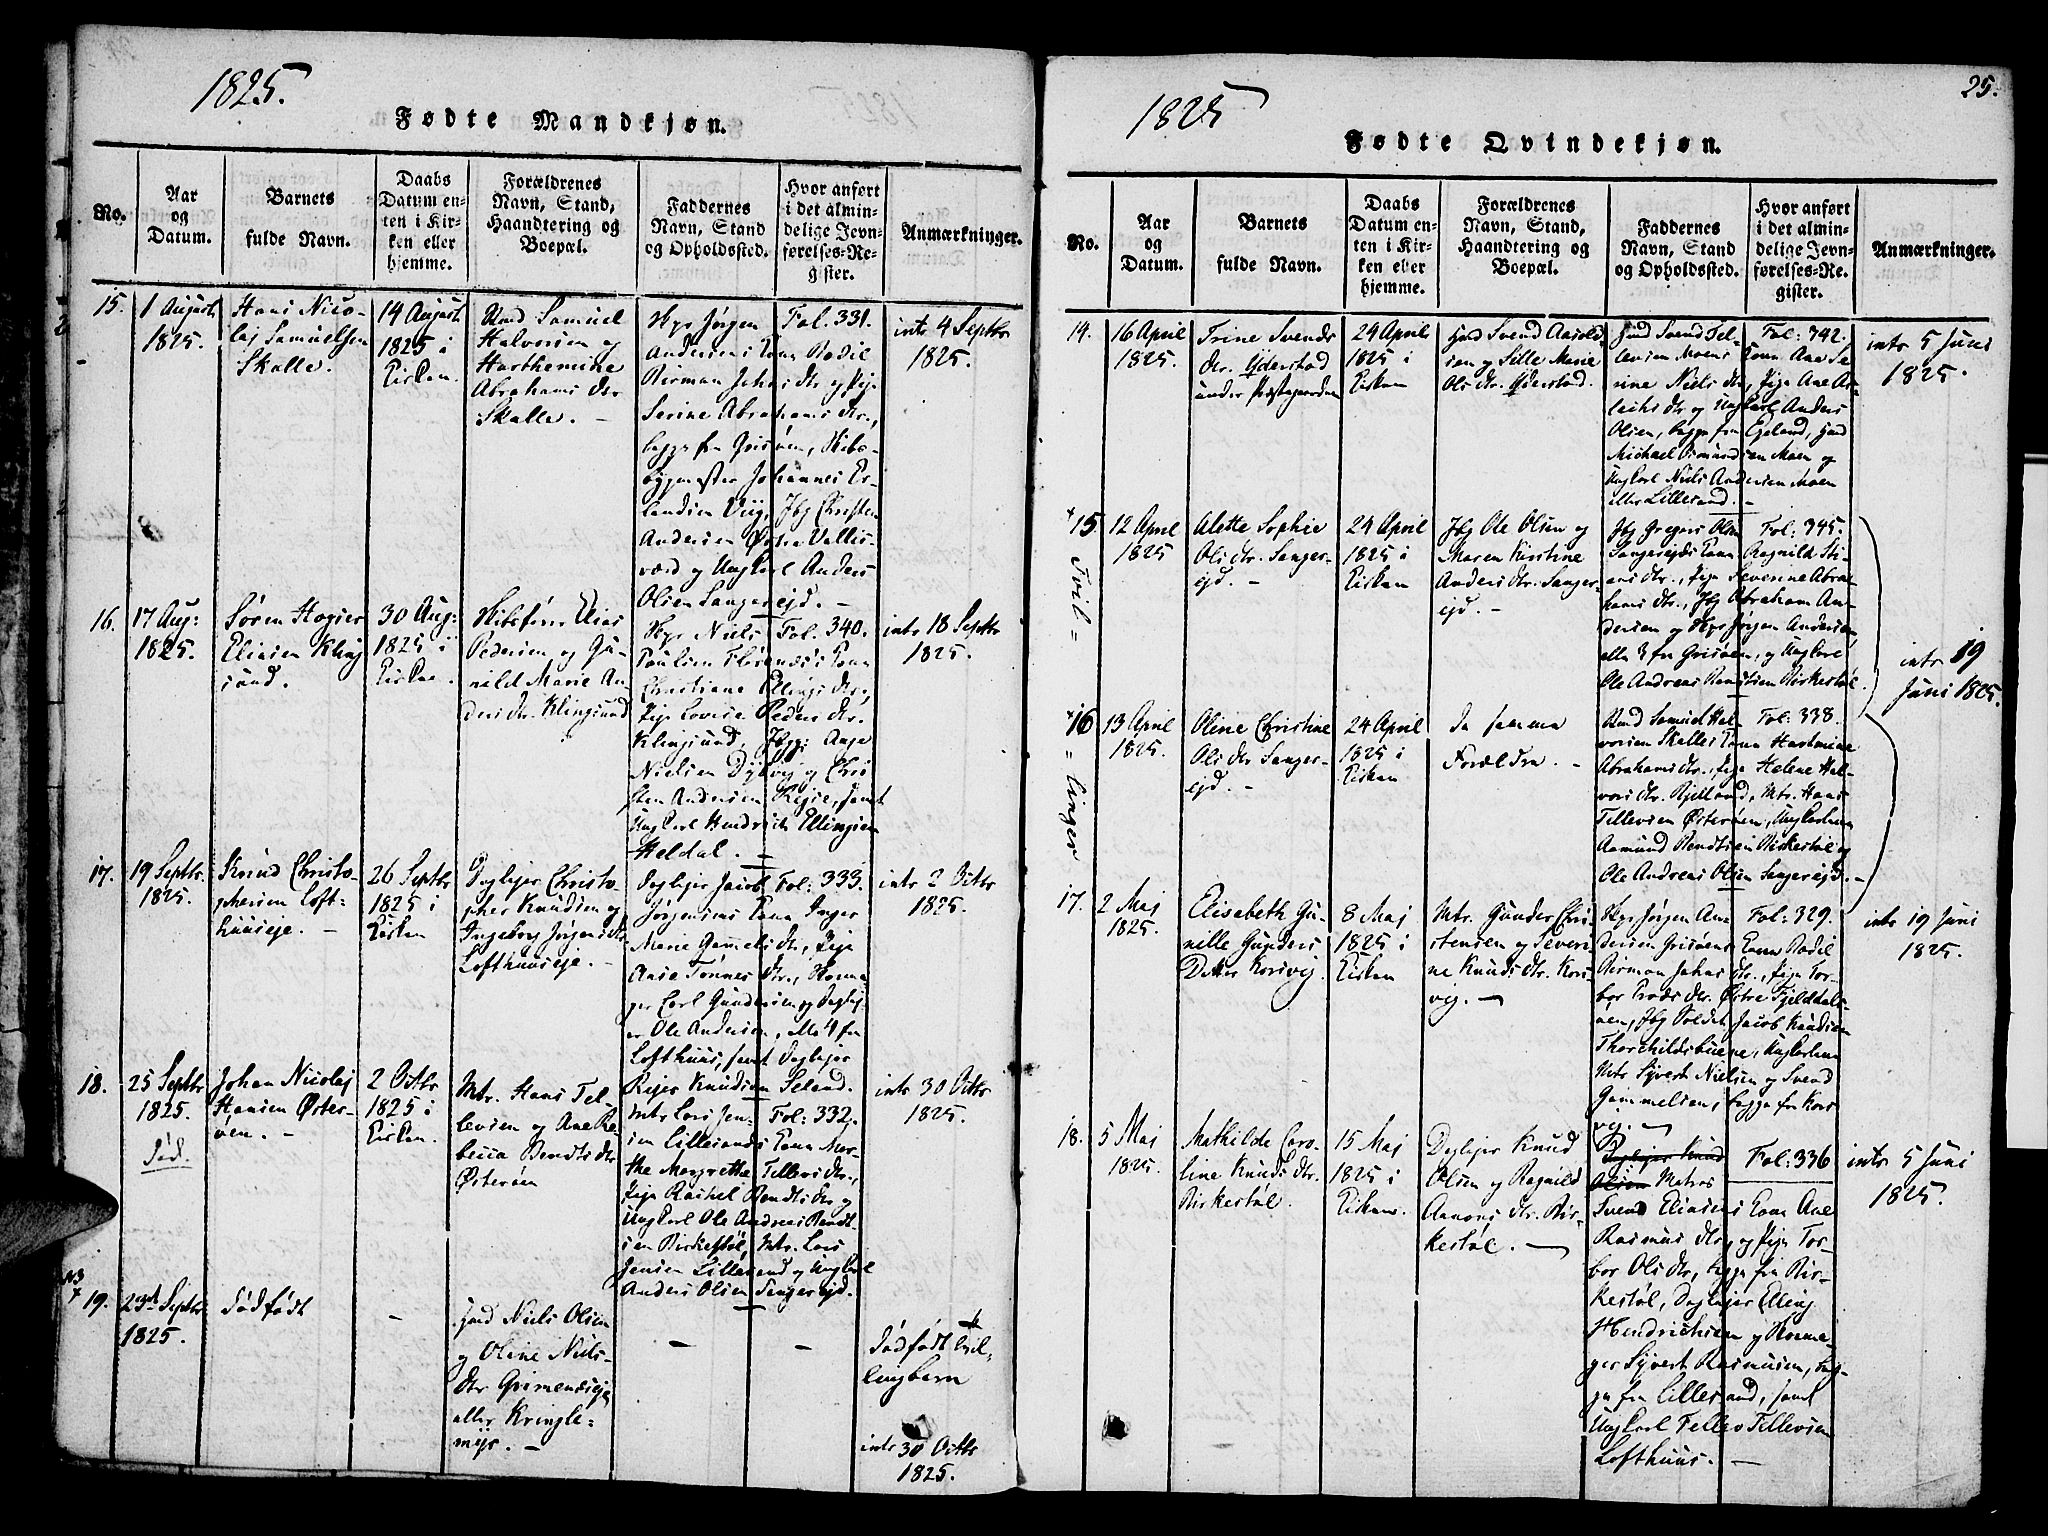 1825.
Fødte Mandkjøn.
No.
Aar
og
Datum.
Barnets
fulde Navn.
Daabs
Datum en-
ten i Kir-
ken eller
hjemme.
Forældrenes
Navn, Stand,
Haandtering og
Boepæl.
Faddernes
Navn, Stand
og Opholdssted.
Hvor anført
i det almin-
delige Jevn-
førelses-Re-
gister.
Anmærkninger.
15.
1 August
1825.
Hans Nico-
laj Samuelsen
Skalle.
14 August
1825 i
Kirken.
Samuel
Halvorsen og
Harthemine
Abrahams dtr
Skalle. -
Jørgen
Andersens Kona Bodil
Birman Johns dtr og Pige
Serine Abrahams dtr,
begge fra Grisøen, Skibs-
bygmester Johannes Er-
landsen Viig, Christen
Andersen Østre Vallis-
værd og Ungkarl Anders
Olsen Sangereid. -
Fol. 331.
intr 4 Septbr
1825.
16.
17 Aug:
1825.
Søren Hagier
Eliasen Kling
sund.
30 Aug:
1825 i
Kirken.
Skibsfører Elias
Pedersen og Gu-
nild Marie An-
ders dtr. Klingsund
Niels
Poulsen Kona
Christiane Ellings dtr,
Pige Lovise Peders dtr.
Klingsund, Aage
Nielsen Dybvig og Chri-
sten Andersen samt
Ungkarl Hendrich Ellingsen
Heldal. -
Fol. 340.
intr 18 Septbr
1825.
17.
19 Septbr.
1825.
Knud Christo-
phersen Loft-
huuseje. -
26 Septbr
1825 i
Kirken
Daglejer Christo-
pher Knudsen og
Ingeborg Jørgens dtr
Lofthuuseje. -
Daglejer Jacob
Jørgensens Kona Inger
Marie Gammels dtr, Pige
Anne Tønnes dtr,
Carl Gundersen og Daglej-
er Ole Andersen, alle 4 fra
Lofthuus, samt Daglejer
Rejer Knudsen Seland.
Fol: 333.
intr 2 Octbr
1825.
18.
25 Septbr
1825.
Død.
Johan Nicolaj
Hansen Øster-
øen. -
2 Octbr
1825 i
Kirken.
Mtr. Hans Tel-
levsen og Ane Re-
becca Bendts dtr
Østerøen
Mtr Lars Jen-
sen Lillesands Kona Mar-
the Margrethe Tellevs dtr,
Pige Rachel Bendts dtr og
Ungkarl Ole Andreas Bendt-
sen Birkestøl, Mtr. Lars
Jensen Lillesand og Ungkarl
Anders Olsen Sangereid.
Fol: 332.
intr 30 Octbr
1825.
19.
23de Septbr
1825.
Dødfødt
-
Niels Olsen
og Oline Niels-
dtr Grimenseje
eller Kringle-
myr. -
-
-
Dødfødt tvil-
lingbarn
intr 30 Octbr
1825.
1825
25.
Fødte Qvindekjøn.
No.
Aar
og
Datum.
Barnets
fulde Navn.
Daabs
Datum en-
ten i Kir-
ken eller
hjemme.
Forældrenes
Navn, Stand,
Haandtering og
Boepæl.
Faddernes
Navn, Stand
og Opholdssted.
Hvor anført
i det almin-
delige Jevn-
førelses-Re-
gister.
Anmærkninger.
14.
16 April
1825.
Trine Svends
dtr. Yderstad
under Præstegaarden
24 April
1825 i
Kirken
Svend Aanold
sen og Sille Marie
Ols dtr. Yderstad.
Svend Tel-
levsen Moens Kona Ane Se-
rine Niels dtr, Pige Ane As-
lachs dtr og Ungkarl Anders
Olsen, begge fra Egeland,
Michael Osmundsen Moen og
Ungkarl Niels Andersen Moen
eller Lillesand. -
Fol: 342.
intr 5 Juni
1825.
15.
Tvil =
12 April
1825
Alette Sophie
Ols dtr. Sanger-
ejd. -
24 April
1825 i
Kirken
Ole Olsen og
Maren Kirstine
Anders dtr. Sanger-
ejd. -
Gregers Olsen
Sangerejds Kona Ragnild Sti-
ans dtr., Pige Severine Abra-
hams dtr., Abraham An-
dersen og Jørgen Andersen,
alle 3 fra Grisøen, og Ungkarl
Ole Andreas Bendtsen Birkestøl.
Fol: 345.
intr 19
Juni 1825.
16
= linger
13 April
1825.
Oline Christine
Ols dtr Sanger-
ejd. -
24 April
1825 i
Kirken
De samme
Forældre. -
Samuel Hal-
vorsen Skalles Kona Hartmine
Abrahams dtr., Pige Helene Hal-
vors dtr. Kjelland, Mtr. Hans
Tellevsen Østerøen, Ungkarlene
Aamund Bendtsen Birkestøl og
Ole Andreas Olsen Sangerejd. -
Fol: 338.
17.
2 Maj
1825.
Elisabeth Gu-
nille Gunders
Datter Korsvig.
8 Maj
1825 i
Kirken
Mtr. Gunder Chri-
stensen og Severi-
ne Knuds dtr. Kors-
vig. -
Jørgen An-
dersen Grisøens Kona Bodil
Birman Johns dtr, Pige Tor-
bor dtr. Østre Fjelddals-
øen, Jacob Knudsen
Thorchildsbuene, Ungkarlene
Mtr Syvert Nielsen og Svend
Gammelsen, begge fra Kors
vig. -
Fol: 329.
intr 19 Juni
1825.
18.
5 Maj
1825.
Mathilde Caro-
line Knuds dtr.
Birkestøl.
15 Maj
1825 i
Kirken.
Daglejer Knud
Olsen og Ragnild
Aanons dtr. Bir-
kestøl. -
Daglejer Knud
Olsen Matros
Svend Eliasens Kona Ane
Rasmus dtr, og Pige Tor-
bor Ols dtr, begge fra Bir-
kestøl, Daglejer Elling
Hendrichsen og
Syvert Rasmusen, beg-
ge fra Lillesand, samt
Ungkarl Tellev Tellevsen
Lofthuus. -
Fol: 336
intr 5 Juni
1825.